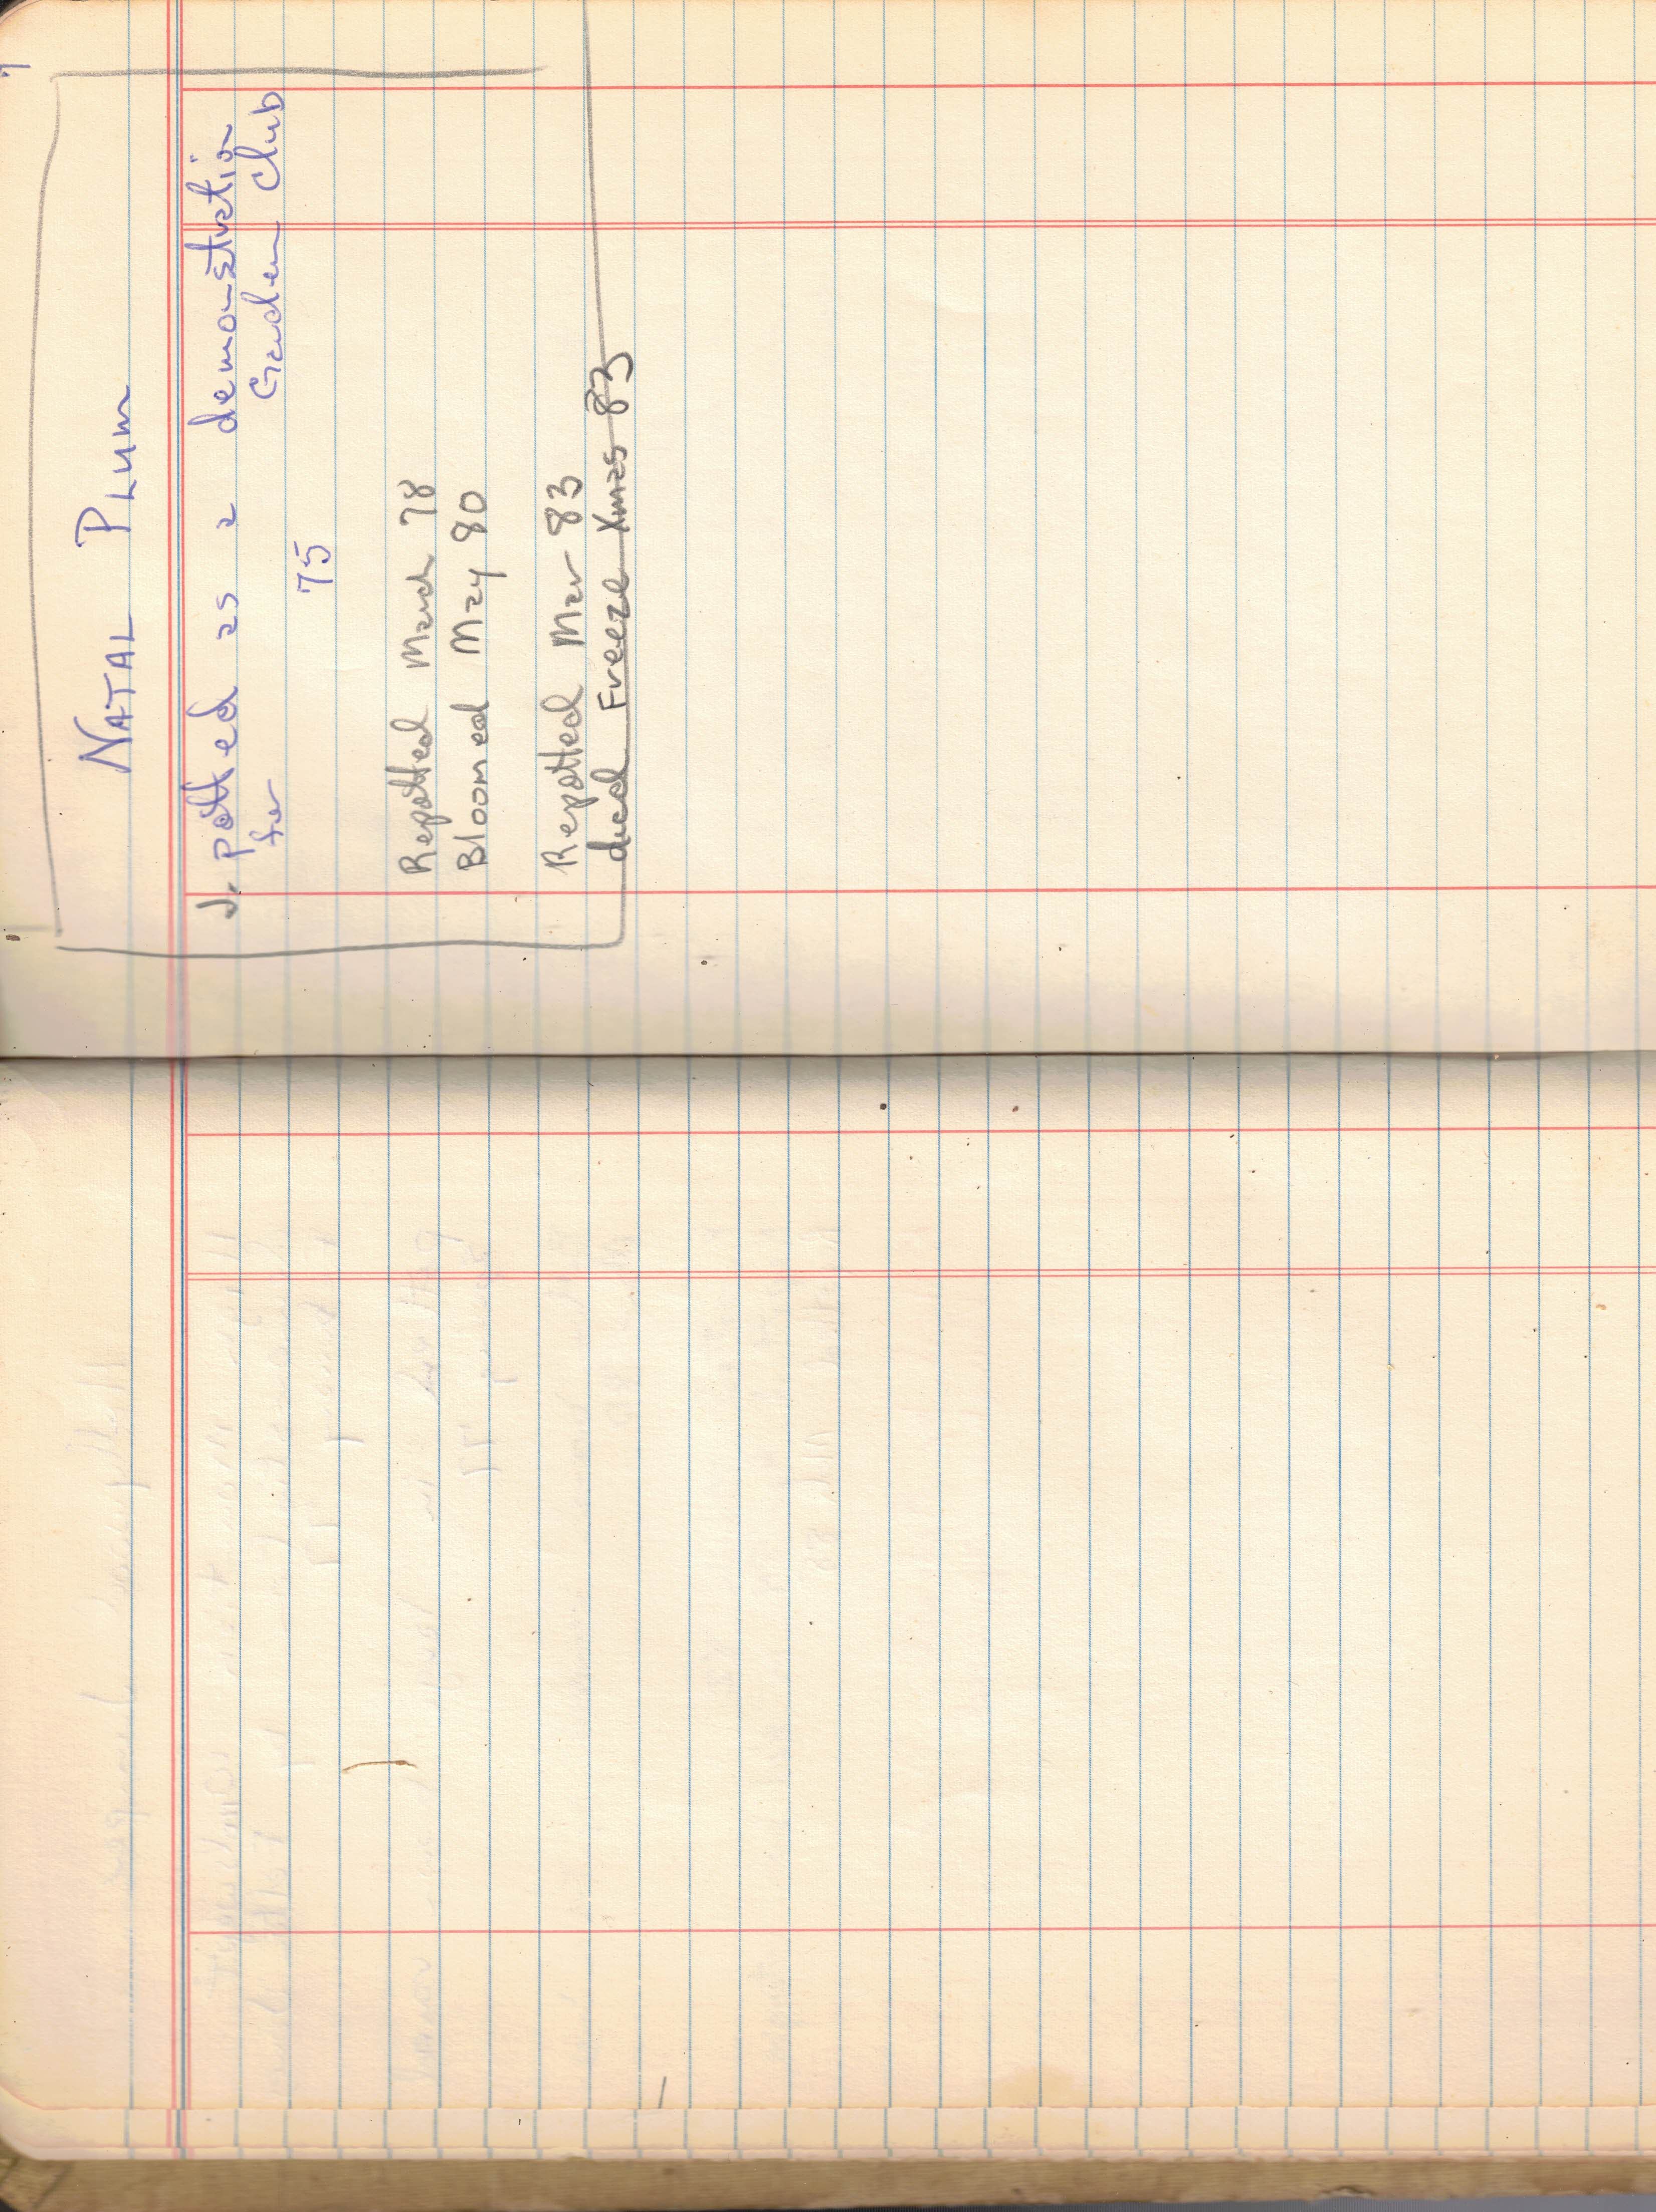 7
NATAL PLUM
J. potted as a demonstration
for Garden Club
75
Repotted March 78
Bloomed May 80
Repotted Mar 83
died Freeze Xmas 83